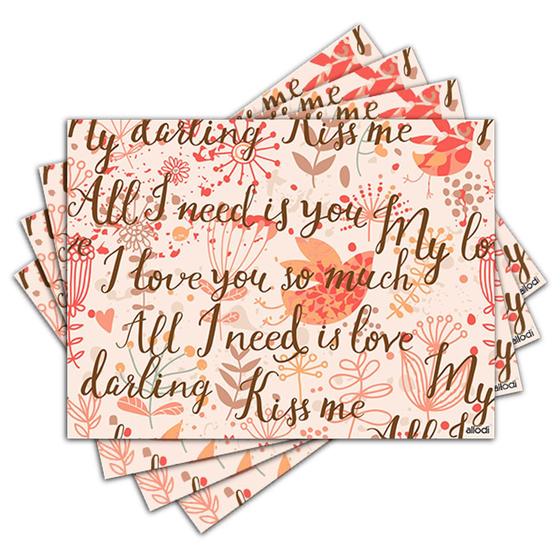 My darling Kiss me
All I need is you My lo
I love you so much
All I need is love
darling Kiss me My
All I
allodi